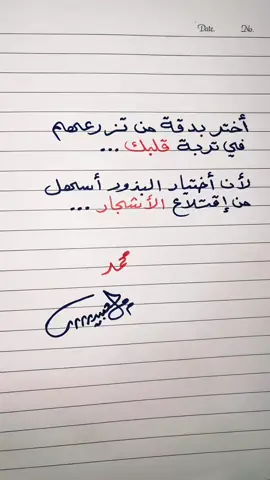 Date. No.
أختر بدقة من تزرعهم
في تربة قلبك ...
لأن أختيار البذور أسهل
من إقتلاع الأشجار ...
محمد